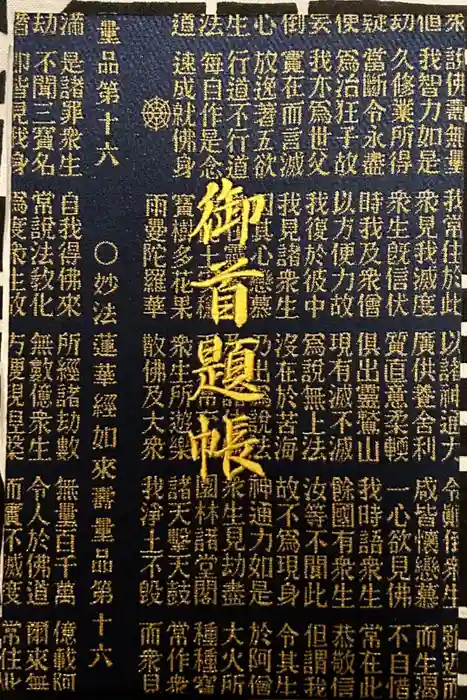 御首題帳
我常住於此 以諸神通力
我智力如是 衆見我滅度 廣供養舍利 咸皆懷戀慕 而生
劫 久修業所得 衆生既信伏 質直意柔輭 一心欲見佛 不自惜
疑 當斷令永盡 時我及衆僧 俱出靈鷲山 我時語衆生 常在此
使 爲治狂子故 以方便力故 現有滅不滅 餘國有衆生 恭敬信
妄 我亦爲世父 我復於彼中 爲說無上法 汝等不聞此 但謂我
倒 實在而言滅 我見諸衆生 沒在於苦海 故不爲現身 令其生
心 放逸著五欲 因其心戀慕 乃出爲說法 神通力如是 於阿僧
生 行道不行道 衆生見劫盡 大火所
法 每自作是念 園林諸堂閣 種種寶
道 速成就佛身 寶樹多花果 衆生所遊樂 諸天擊天鼓 常作衆
雨曼陀羅華 散佛及大衆 我淨土不毀 而衆見
量品第十六 ○妙法蓮華經如來壽量品第十六
滿 是諸罪衆生 自我得佛來 所經諸劫數 無量百千萬 億載阿
劫 不聞三寶名 常說法教化 無數億衆生 令人於佛道 爾來無
則皆見我身 爲度衆生故 方便現涅槃 而實不滅度 常住此